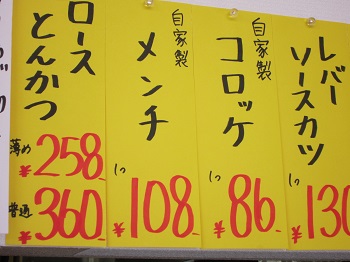 レバー
ソースカツ
1つ
¥130
自家製
コロッケ
1つ
¥86-
自家製
メンチ
1つ
¥108-
ロース
とんかつ
薄め
¥258-
普通
¥360-